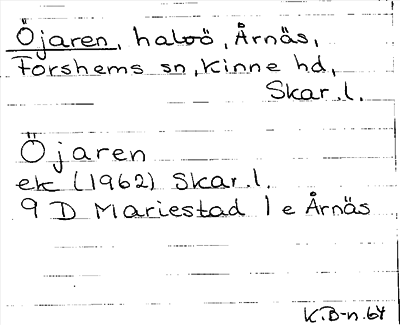 Öjaren, halvö, Årnäs,
Forshems sn, Kinne hd,
Skar.l.
Öjaren
ek (1962) Skar.l.
9 D Mariestad 1 e Årnäs
K.B-n.64